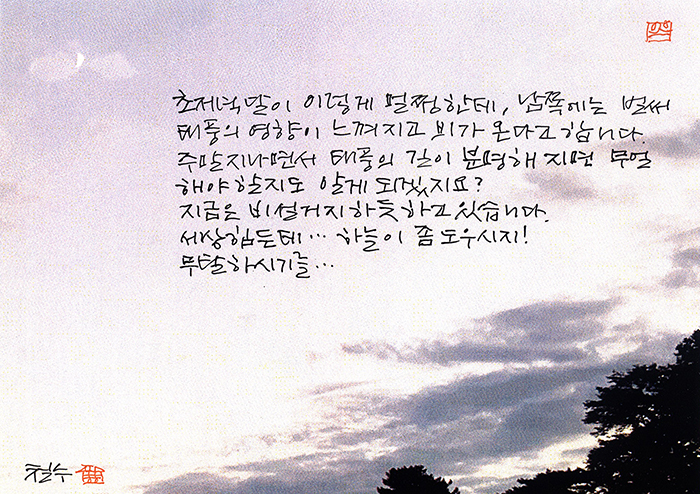 초저녁달이 이렇게 멀쩡한데, 남쪽에는 벌써
태풍의 영향이 느껴지고 비가 온다고 합니다.
주말지나면서 태풍의 길이 분명해지면 무얼
해야할지도 알게 되겠지요?
지금은 비설거지하듯하고 있습니다.
세상힘든데… 하늘이 좀 도우시지!
무탈하시기를…
철수